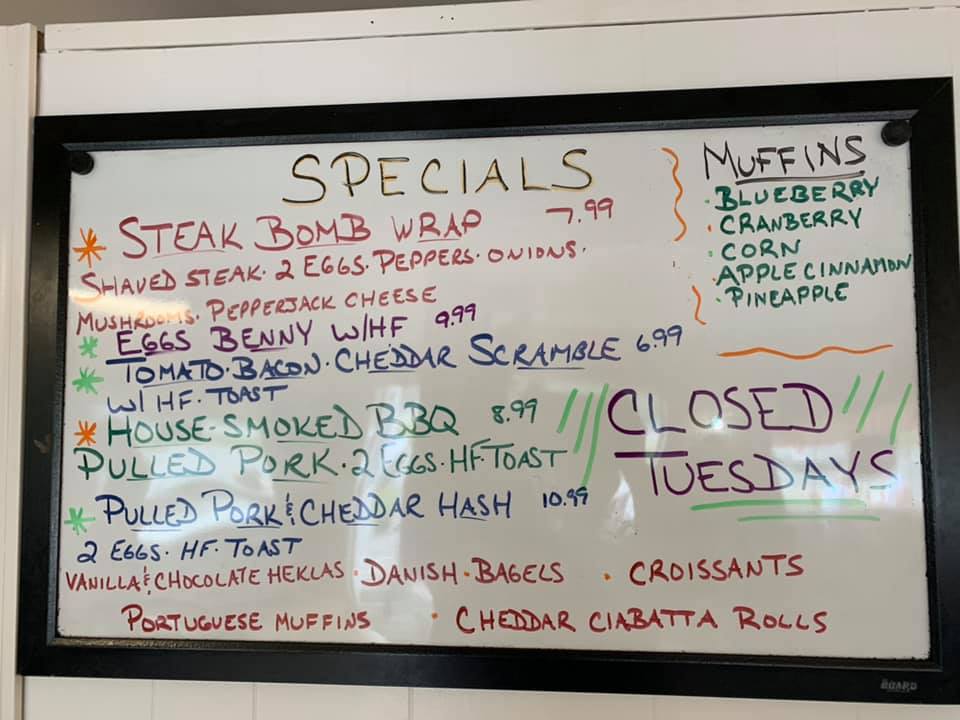 SPECIALS
STEAK BOMB WRAP 7.99
SHAVED STEAK · 2 EGGS · PEPPERS · ONIONS ·
MUSHROOMS · PEPPERJACK CHEESE
EGGS BENNY W/HF 9.99
TOMATO · BACON · CHEDDAR SCRAMBLE 6.99
W/ HF · TOAST
HOUSE-SMOKED BBQ 8.99
PULLED PORK · 2 EGGS · HF · TOAST
PULLED PORK & CHEDDAR HASH 10.99
2 EGGS · HF · TOAST
VANILLA & CHOCOLATE HEKLAS · DANISH · BAGELS · CROISSANTS
PORTUGUESE MUFFINS · CHEDDAR CIABATTA ROLLS
MUFFINS
· BLUEBERRY
· CRANBERRY
· CORN
· APPLE CINNAMON
· PINEAPPLE
CLOSED
TUESDAYS
BOARD